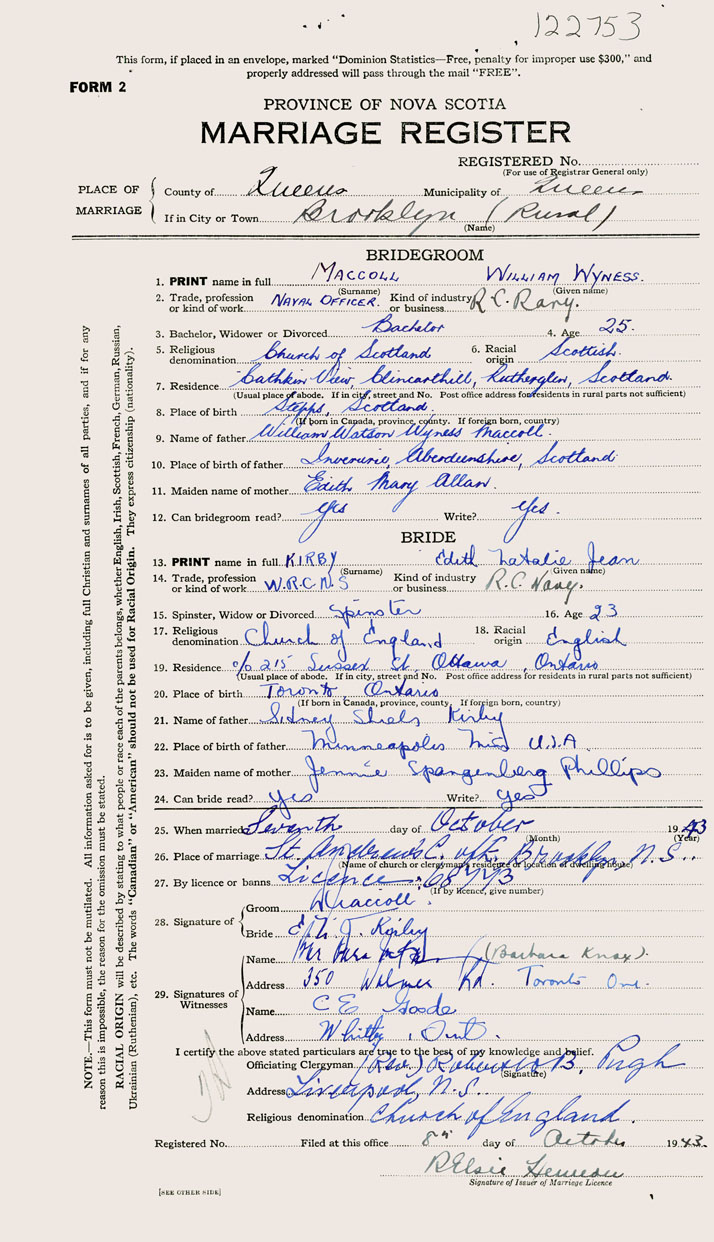 122753
This form, if placed in an envelope, marked "Dominion Statistics—Free, penalty for improper use $300," and
properly addressed will pass through the mail "FREE".
FORM 2
PROVINCE OF NOVA SCOTIA
MARRIAGE REGISTER
REGISTERED No.
(For use of Registrar General only)
PLACE OF MARRIAGE
County of Queens Municipality of Queens
If in City or Town Brooklyn (Rural)
(Name)
BRIDEGROOM
1. PRINT name in full MACCOLL WILLIAM WYNESS.
(Surname) (Given name)
2. Trade, profession or kind of work NAVAL OFFICER. Kind of industry or business R.C. Navy.
3. Bachelor, Widower or Divorced Bachelor 4. Age 25.
5. Religious denomination Church of Scotland 6. Racial origin Scottish.
7. Residence Cathkin View, Clincarthill, Rutherglen, Scotland.
(Usual place of abode. If in city, street and No. Post office address for residents in rural parts not sufficient)
8. Place of birth Stepps, Scotland.
(If born in Canada, province, county. If foreign born, country)
9. Name of father William Watson Wyness Maccoll.
10. Place of birth of father Inverurie, Aberdeenshire, Scotland
11. Maiden name of mother Edith Mary Allan.
12. Can bridegroom read? Yes Write? Yes.
BRIDE
13. PRINT name in full KIRBY Edith Natalie Jean
(Surname) (Given name)
14. Trade, profession or kind of work W.R.C.N.S Kind of industry or business R.C. Navy.
15. Spinster, Widow or Divorced Spinster 16. Age 23
17. Religious denomination Church of England 18. Racial origin English
19. Residence c/o 215 Sussex St. Ottawa, Ontario
(Usual place of abode. If in city, street and No. Post office address for residents in rural parts not sufficient)
20. Place of birth Toronto, Ontario
(If born in Canada, province, county. If foreign born, country)
21. Name of father Sidney Shiels Kirby
22. Place of birth of father Minneapolis U.S.A.
23. Maiden name of mother Jennie Spangenberg Phillips
24. Can bride read? yes Write? yes
25. When married Seventh day of October 1943
(Month) (Year)
26. Place of marriage St. Andrew's C. of E. Brooklyn, N.S..
(Name of church or clergyman's residence or location of dwelling house)
27. By licence or banns Licence
(If by licence, give number)
28. Signature of
Groom Maccoll.
Bride Kirby
29. Signatures of Witnesses
Name (Barbara Knox).
Address 350 Walmer Rd. Toronto Ont.
Name C E Goode
Address Whitby, Ont.
I certify the above stated particulars are true to the best of my knowledge and belief.
Officiating Clergyman (Rev.) B. Pugh
(Signature)
Address Liverpool, N.S..
Religious denomination Church of England.
Registered No. Filed at this office 8th day of October 1943.
Signature of Issuer of Marriage Licence
[SEE OTHER SIDE]
NOTE.—This form must not be mutilated. All information asked for is to be given, including full Christian and surnames of all parties, and if for any
reason this is impossible, the reason for the omission must be stated.
RACIAL ORIGIN will be described by stating to what people or race each of the parents belongs, whether English, Irish, Scottish, French, German, Russian,
Ukrainian (Ruthenian), etc. The words "Canadian" or "American" should not be used for Racial Origin. They express citizenship (nationality).